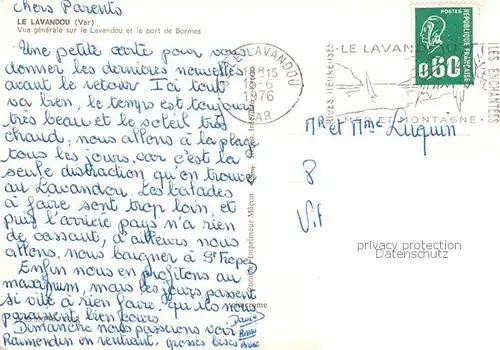 Chers Parents
LE LAVANDOU (Var)
Vue générale sur le Lavandou et le port de Bormes
Une petite carte pour vous
donner les dernières nouvelles
avant le retour. Ici tout
va bien, le temps est toujours
très beau et le soleil très
chaud, nous allons à la plage
tous les jours car c'est la
seule distraction qu'on trouve
au Lavandou. Les balades
à faire sont trop loin, et
puis l'arrière pays n'a rien
de cassant, d'ailleurs nous
allons nous baigner à St Tropez
Enfin nous en profitons au
maximum, mais les jours passent
si vite à rien faire, qu'ils nous
paraissent bien courts.
Dimanche nous passerons voir
Raimondin en rentrant, grosses bises
LE LAVANDOU
18H15
-6
1976
VAR
RIVES HEUREUSES
LE LAVANDOU
ILES ENCHANTEES
MER ET MONTAGNE
POSTES
REPUBLIQUE FRANÇAISE
0,60
Mr et Mme Luquin
8
Vif
privacy protection
Datenschutz
Imprimeur